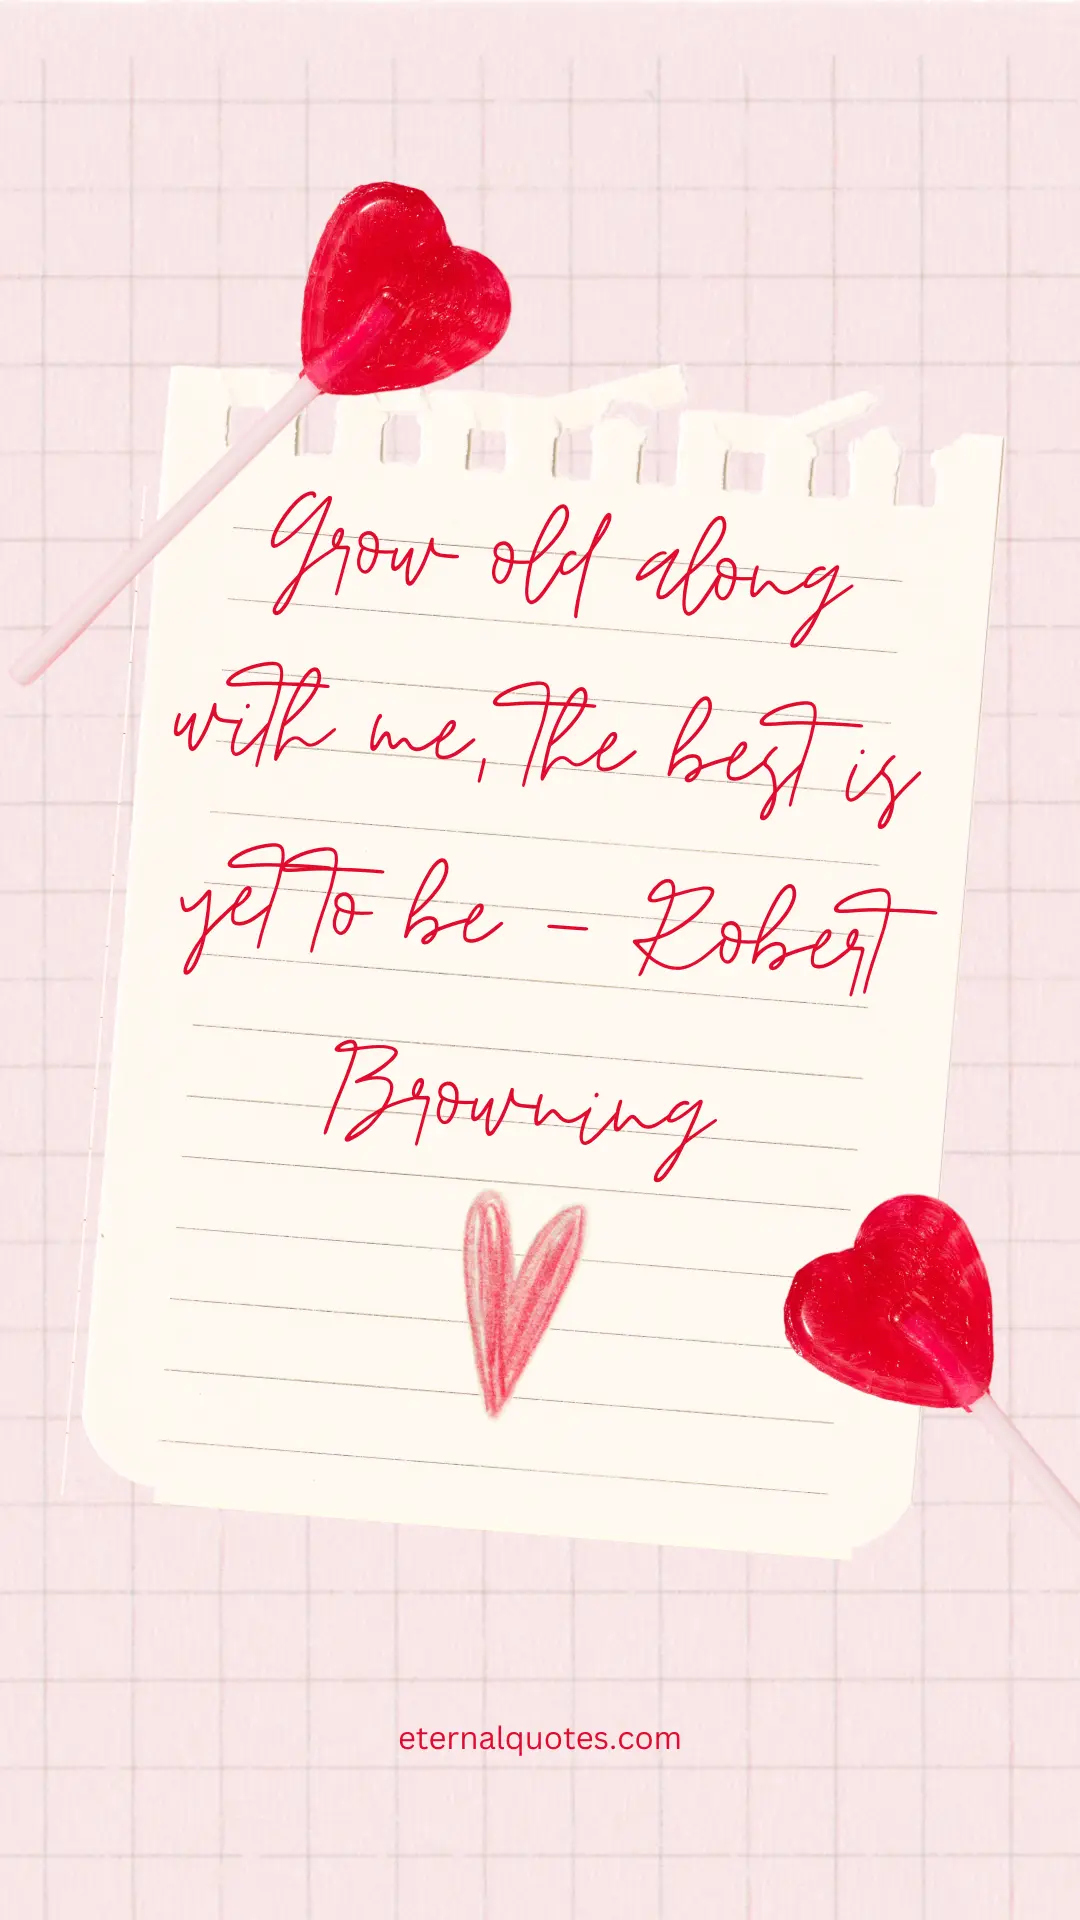 Grow old along
with me, the best is
yet to be - Robert
Browning
eternalquotes.com